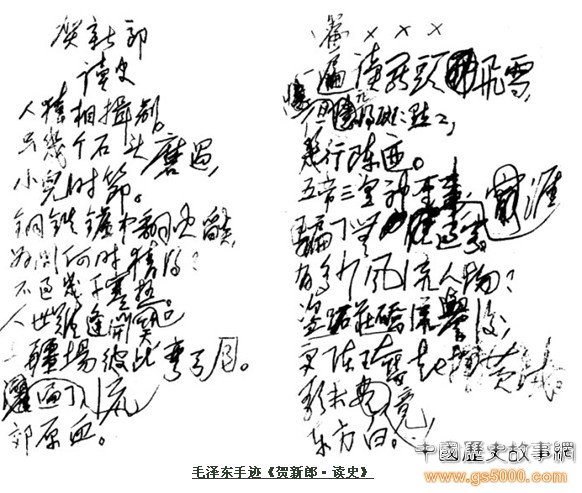 賀新郎
读史
人猿相揖别。
只幾个石头磨过,
小兒时節。
铜鉄鑪中翻火燄,
为问何时猜得?
不过幾千寒热。
人世难逢開口笑。
上疆場彼此彎弓月。
流遍了,
郊原血。
× × ×
一篇读罢頭飛雪,
但記得斑斑點點,
幾行陈迹。
五帝三皇神聖事,
騙了無涯過客。
有多少风流人物?
盗跖莊蹻流譽後,
更陈王奮起揮黄钺。
歌未竟,
东方白。
毛泽东手迹《贺新郎·读史》
中國歷史故事網
www.gs5000.com